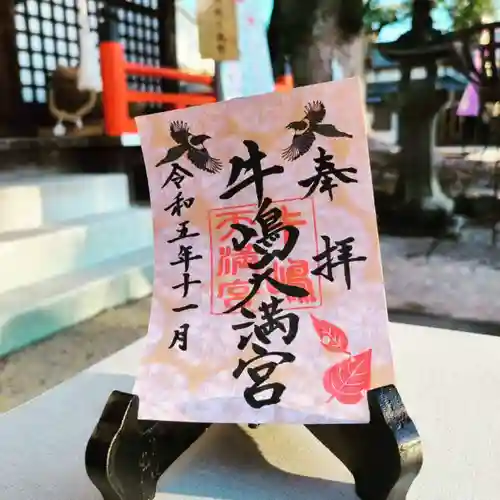 奉拝
牛嶋天満宮
牛嶋
天満宮
令和五年十一月